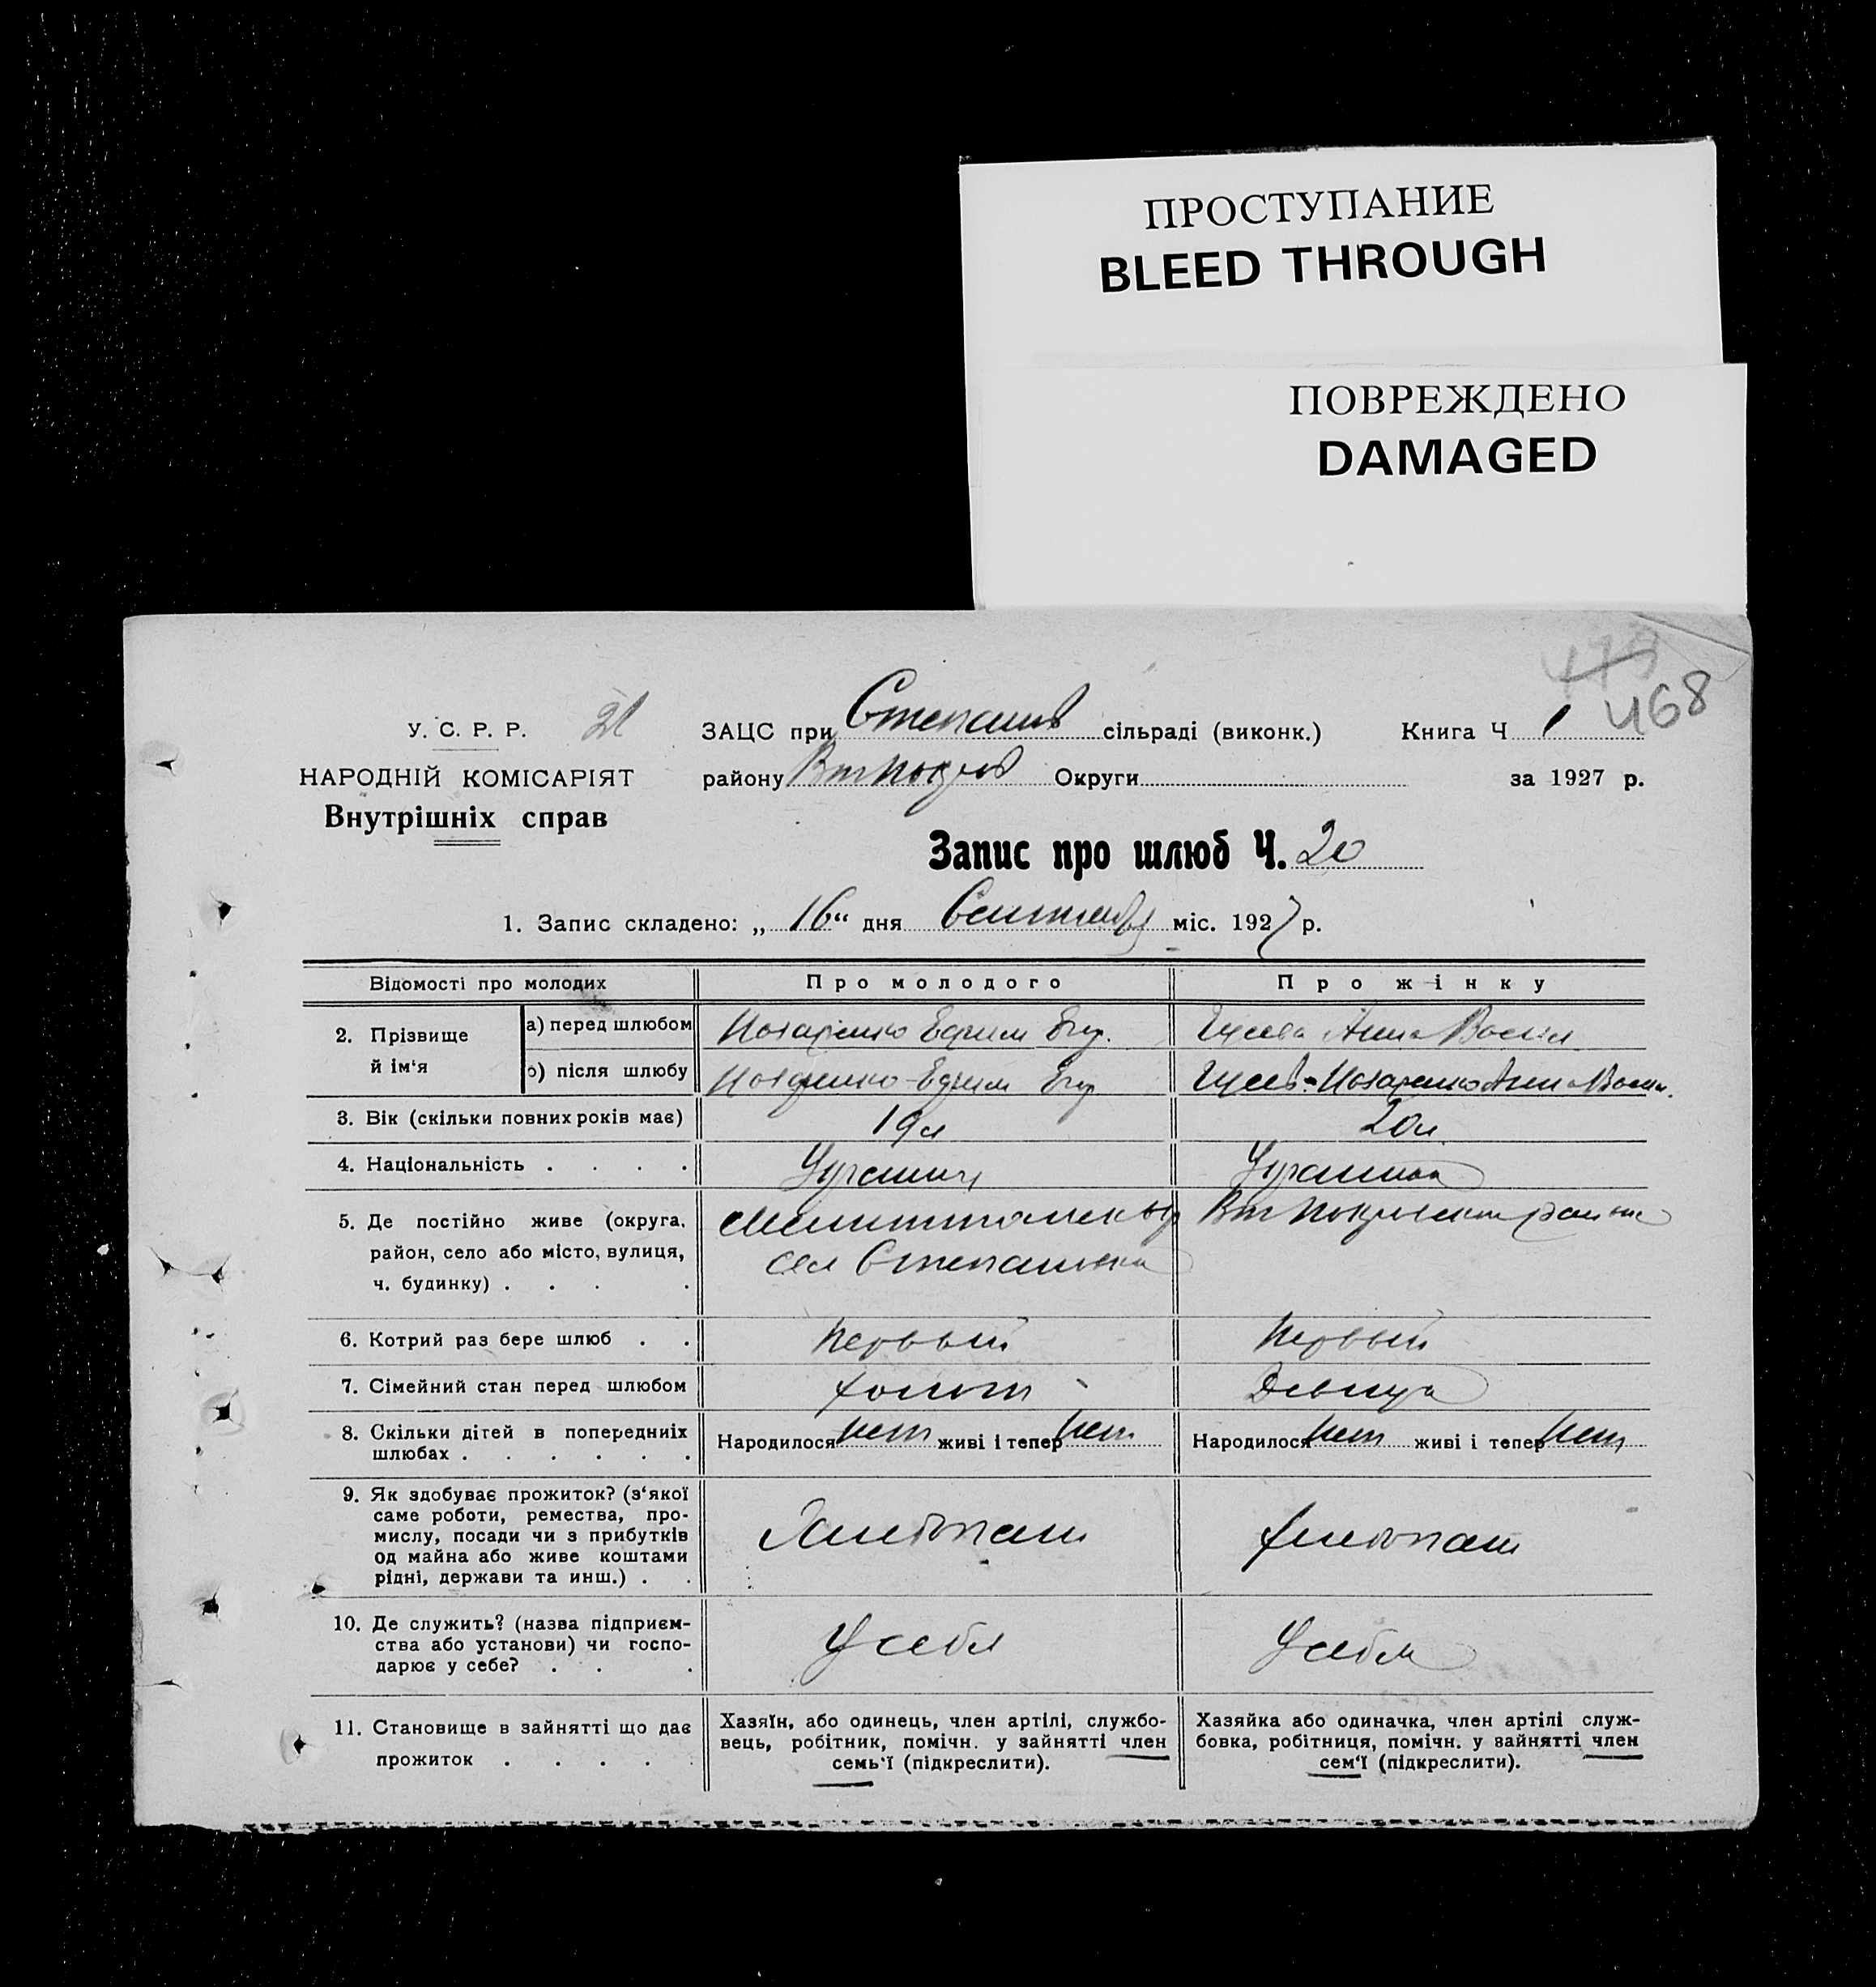 ПРОСТУПАНИЕ
BLEED THROUGH
ПОВРЕЖДЕНО
DAMAGED
479
468
У. С. Р. Р.
ЗАЦС при Степанів сільраді (виконк.) Книга Ч 1
НАРОДНІЙ КОМІСАРІЯТ
району Округи за 1927 р.
Внутрішніх справ
Запис про шлюб Ч. 20
1. Запис складено: „ 16 “ дня Сентября міс. 1927 р.
Відомості про молодих Про молодого Про жінку
2. Прізвище й ім'я
а) перед шлюбом Егор. Гусева Анна
б) після шлюбу Егор
3. Вік (скільки повних років має) 19 л 20 л
4. Національність . . . .
5. Де постійно живе (округа, район, село або місто, вулиця, ч. будинку) . . . .
сел Степановка
6. Котрий раз бере шлюб . . Первый Первый
7. Сімейний стан перед шлюбом холост Девица
8. Скільки дітей в попередниіх шлюбах . . . . . .
Народилося нет живі і тепер нет Народилося нет живі і тепер нет
9. Як здобуває прожиток? (з'якої саме роботи, ремества, промислу, посади чи з прибутків од майна або живе коштами рідні, держави та инш.) . .
Хлебопаш хлебопаш
10. Де служить? (назва підприємства або установи) чи господарює у себе? . . .
У себя У себя
11. Становище в зайнятті що дає прожиток . . . . .
Хазяїн, або одинець, член артілі, службовець, робітник, помічн. у зайнятті член семь'ї (підкреслити).
Хазяйка або одиначка, член артілі службовка, робітниця, помічн. у зайнятті член сем'ї (підкреслити).